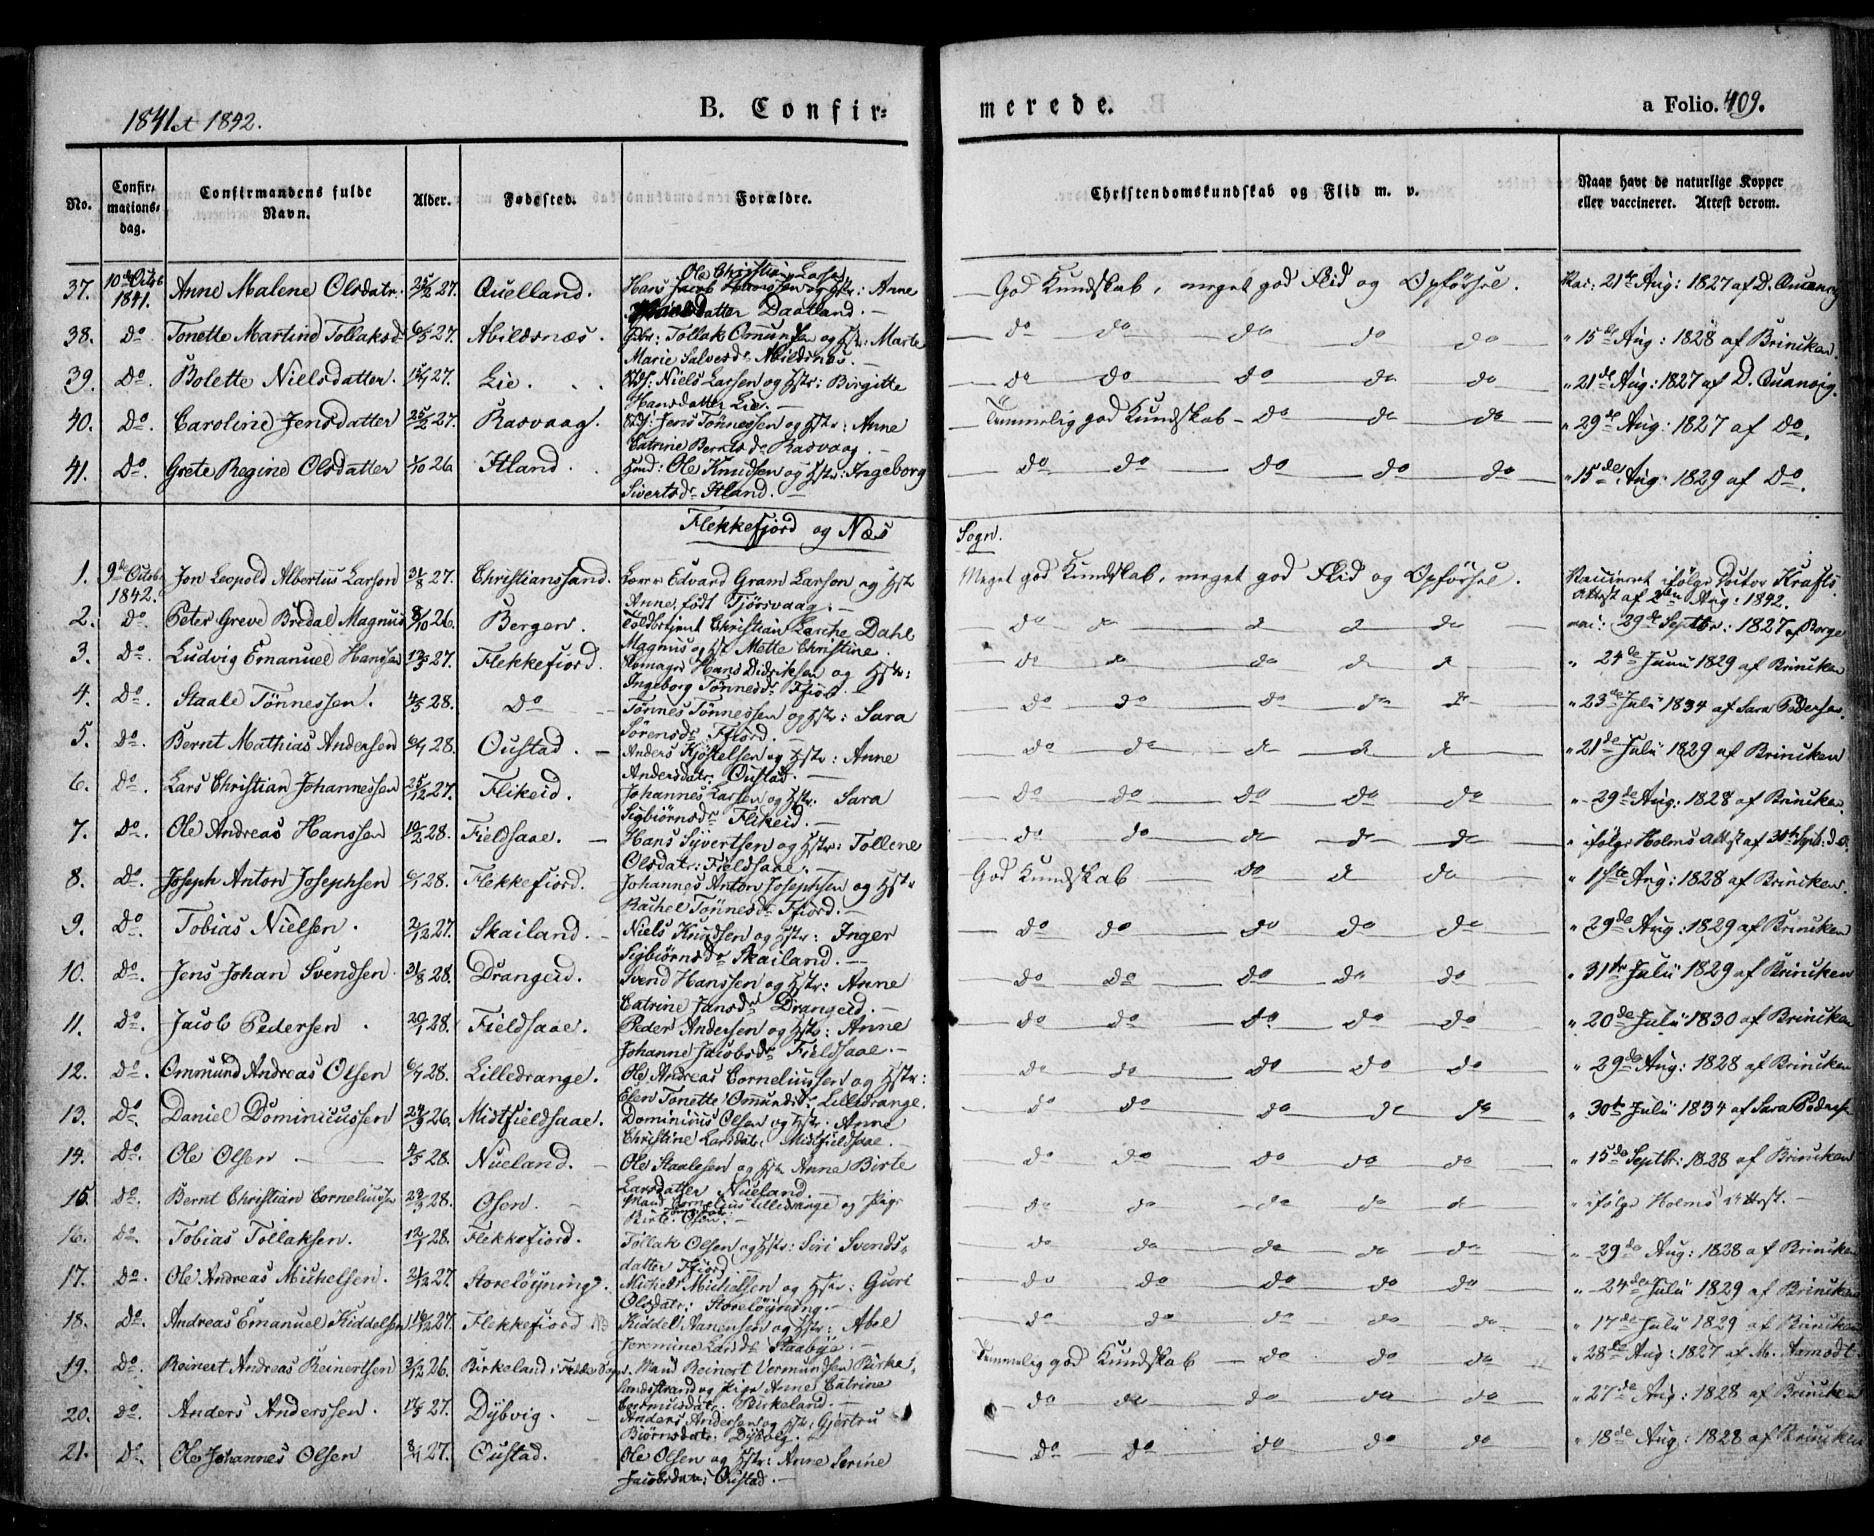 1841 et 1842.
B. Confir=
merede.
a Folio. 409.
No.
Confir-
mations-
dag.
Confirmandens fulde
Navn.
Alder.
Fødested.
Forældre.
Christendomskundskab og Flid m. v.
Naar havt de naturlige Kopper
eller vaccineret. Attest derom.
37. 10de Octob 1841. Anne Malene Olsdatr. 25/2 27. Quelland. Ole Christian Larsen
og Hstr: Anne
datter Daatland. —
God Kundskab, meget god Flid og Opförsel. Vac: 21de Aug: 1827 af D. Quanvig
38. Do Tonette Martine Tollaksd 6/5 27. Abildsnæs. Gbr: Tollak Omundsen og Hstr: Marte
Marie Salvesdr Abildsnæs.
do do do do do " 15de Aug: 1828 af Brincken.
39. Do. Bolette Nielsdatter. 27. Lie. Niels Larsen og Hstr: Birgitte
Hansdatter Lie. —
do do do do do " 21de Aug: 1827 af D. Quanvig.
40. Do. Caroline Jensdatter 25/2 27. Rasvaag. Jens Tönnessen og Hstr: Anne
Catrine Berntsdr Rasvaag. —
Temmelig god Kundskab — do do do " 29de Aug: 1827 af Do.
41. Do. Grete Regine Olsdatter 1/10 26 Itland. Ole Knudsen og Hstr: Ingeborg
Sivertsdr Itland. —
do do do do do " 15de Aug: 1829 af Do.
Flekkefjord og Næs
Sogn.
1. 9de Octob. 1842. Jon Leopold Albertus Larson 31/8 27. Christianssand. Edvard Gram Larson og Hstr
Anne, født Tjörsvaag. —
Meget god Kundskab, meget god Flid og Opförsel. Vaccineret ifölge Doctor Krafts
Attest af Aug: 1842.
2. Do Peter Greve Bredal Magnus 8/10 26. Bergen. Toldbetjent Christian Lasche Dahl
Magnus og Hst Mette Christine.
do do do do do vac: 29de Septbr: 1827 af Borge
3. Do. Ludvig Emanuel Hanssen 27. Flekkefiord. Hans Didriksen og Hstr:
Ingeborg Tönnesdr Ffiord.
do do do do do " 24de Juni 1829 af Brincken
4. Do. Staale Tönnessen. 4/5 28. Do Tönnes Tönnessen og Hstr: Sara
Sörensdr Ffiord. —
do do do do do " 23de Juli 1834 af Sara Pedersen.
5. Do. Bernt Mathias Andersen 6/1 28. Oustad. — Anders Kjöstelsen og Hstr: Anne
Andersdatr. Oustad. —
do do do do do " 21de Juli 1829 af Brincken
6. Do. Lars Christian Johannessen 25/12 27. Flikeid. Johannes Larsen og Hstr. Sara
Sigbiörnsdr Flikeid. —
do do do do do " 29de Aug: 1828 af Brincken
7. Do. Ole Andreas Hanssen 10/2 28. Fieldsaae. — Hans Syvertsen og Hstr: Tollene
Olsdatr: Fieldsaae. —
do do do do do " ifölge Holms Attest af 30te Sept: d. A.
8. Do. Joseph Anton Josephsen 6/1 28. Flekkefiord. Johannes Anton Josephsen og Hstr
Rachel Tönnesdr Ffiord. —
God Kundskab — do do do " 1ste Aug: 1828 af Brincken.
9. Do. Tobias Nielsen. 2/12 27. Skailand. — Niels Knudsen og Hstr: Inger
Sigbiörnsdr Skailand. —
do do do do do " 29de Aug: 1829 af Brincken
10. Do. Jens Johan Svendsen 31/8 28. Drangeid. Svend Hanssen og Hstr: Anne
Catrine Jansdr Drangeid. —
do do do do do " 31te Juli 1829 af Brincken
11. Do. Jacob Pedersen. 20/1 28. Fieldsaae. Peder Andersen og Hstr: Anne
Johanne Jacobsdr Fieldsaae. —
do do do do do " 20de Juli 1830 af Brincken
12. Do. Ommund Andreas Olsen 6/7 28. Lilledrange. Ole Andreas Corneliussen og Hstr:
Elen Tonette Omundsdr. Lilledrange.
do do do do do " 29de Aug: 1828 af Brincken
13. Do. Daniel Dominicussen 24/9 26. Midtfieldsaae. Dominicus Olsen og Hstr: Anne
Christine Larsdatr: Midtfieldsaae. —
do do do do do " 30te Juli 1834 af Sara Pedersen
14. Do. Ole Olsen — 4/5 28. Nueland. — Ole Staalesen og Hstr Anne Birte
Larsdatter Nueland. —
do do do do do " 15de Septbr: 1828 af Brincken
15. Do. Bernt Christian Corneliussen 23/3 28. Osen. — Mand Cornelius Lilledrange og Pige
Birte Osen. —
do do do do do " ifölge Holms Attest. —
16. Do. Tobias Tollaksen. 12/1 28. Flekkefiord. Tollak Olsen og Hstr: Siri Svends-
datter Ffiord —
do do do do do " 29de Aug: 1828 af Brincken
17. Do. Ole Andreas Michelsen. 21/12 27. Storelöyning. Michel Michelsen og Hstr: Guri
Olsdatr: Storelöyning. —
do do do do do " 24de Juli 1829 af Brincken
18. Do. Andreas Emanuel Kiddelsen 16/12 27. Flekkefiord Kiddel Aanensen og Hstr: Abel
Jeremine Larsdr Staaböe. —
do do do do do " 17de Juli 1829 af Brincken
19. Do. Reinert Andreas Reinertsen 3/12 26. Birkeland i Fedde Sogn. Mand Reinert Vermundsen Birke-
landstrand og Pige Anne Catrine
Birkeland. —
Temmelig god Kundskab — do do do " 28de Aug: 1827 af M. Aamodt
20. Do. Anders Anderssen. 27. Dybvig. — Anders Andersen og Hstr: Gjertru
Biörnsdatr: Dybvig. —
do do do do do " 27de Aug: 1828 af Brincken
21. Do. Ole Johannes Olsen 8/1 27. Oustad. Ole Olsen og Hstr: Anne Serine
Jacobsdatr: Oustad. —
do do do do do " 18de Aug: 1828 af Brincken